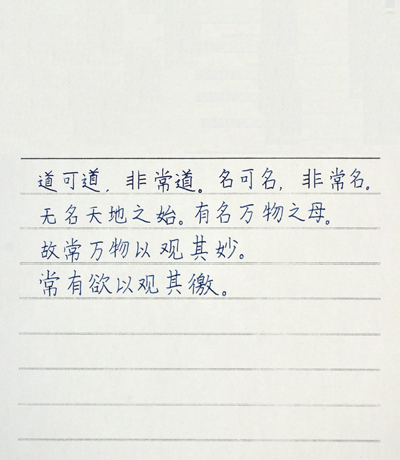 道可道，非常道。名可名，非常名。
无名天地之始。有名万物之母。
故常万物以观其妙。
常有欲以观其徼。